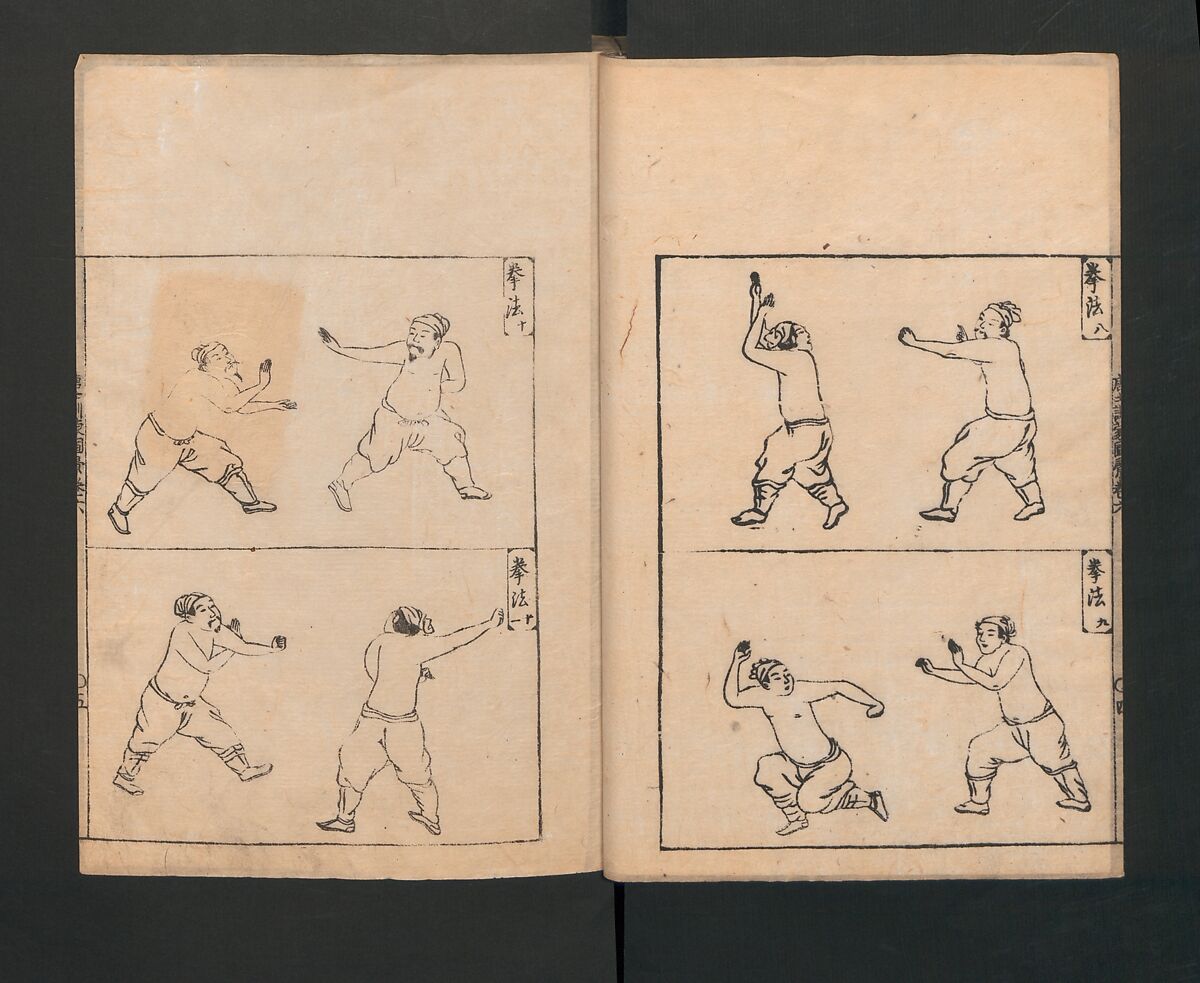 拳法八
拳法九
拳法十
拳法十一